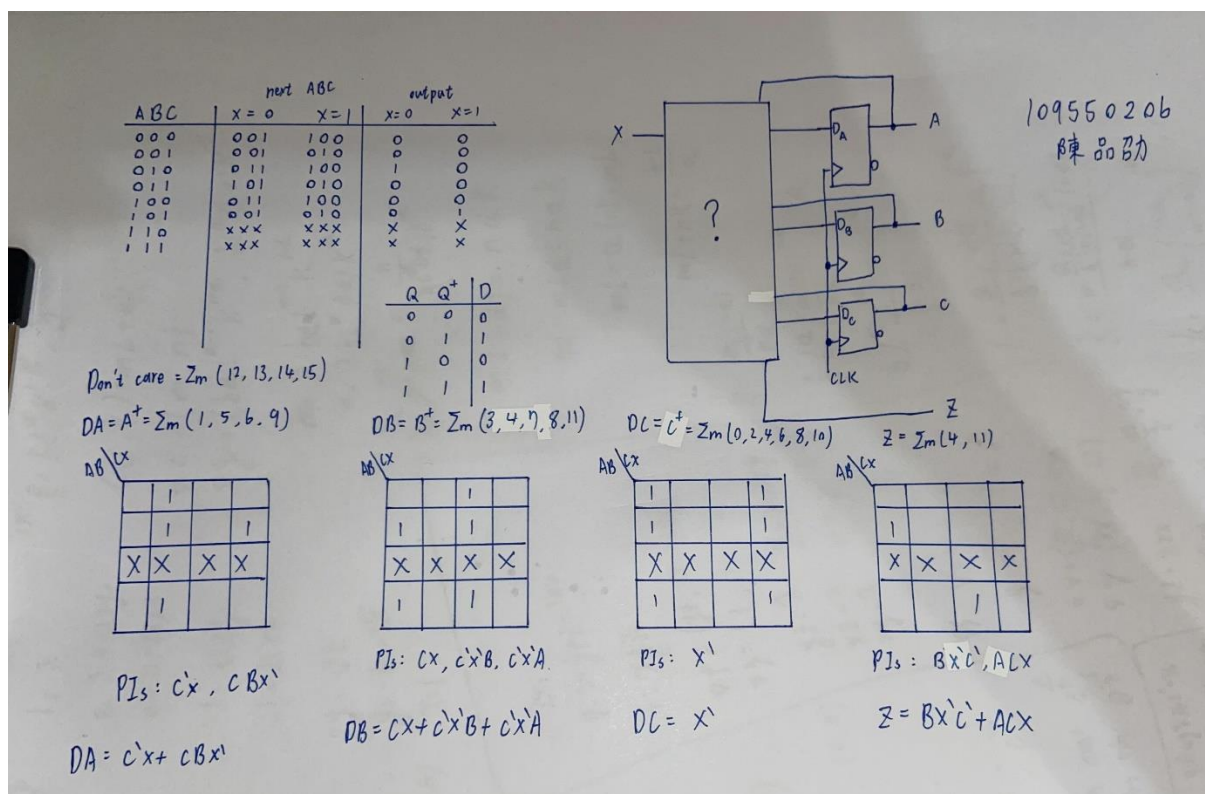 next ABC output
A B C X = 0 X = 1 X=0 X=1
0 0 0 0 0 1 1 0 0 0 0
0 0 1 0 0 1 0 1 0 0 0
0 1 0 0 1 1 1 0 0 1 0
0 1 1 1 0 1 0 1 0 0 0
1 0 0 0 1 1 1 0 0 0 0
1 0 1 0 0 1 0 1 0 0 1
1 1 0 X X X X X X X X
1 1 1 X X X X X X X X
Q Q⁺ D
0 0 0
0 1 1
1 0 0
1 1 1
X
?
DA
A
DB
B
DC
C
CLK
Z
109550206
陳品劭
Don't care = Σm (12, 13, 14, 15)
DA = A⁺ = Σm (1, 5, 6, 9)
DB = B⁺ = Σm (3, 4, 7, 8, 11)
DC = C⁺ = Σm (0, 2, 4, 6, 8, 10)
Z = Σm (4, 11)
AB\CX
1
1 1
X X X X
1
PIs : C'X , CBX'
DA = C'X + CBX'
AB\CX
1
1 1
X X X X
1 1
PIs : CX, C'X'B, C'X'A
DB = CX + C'X'B + C'X'A
AB\CX
1 1
1 1
X X X X
1 1
PIs : X'
DC = X'
AB\CX
1
X X X X
1
PIs : BX'C', ACX
Z = BX'C' + ACX